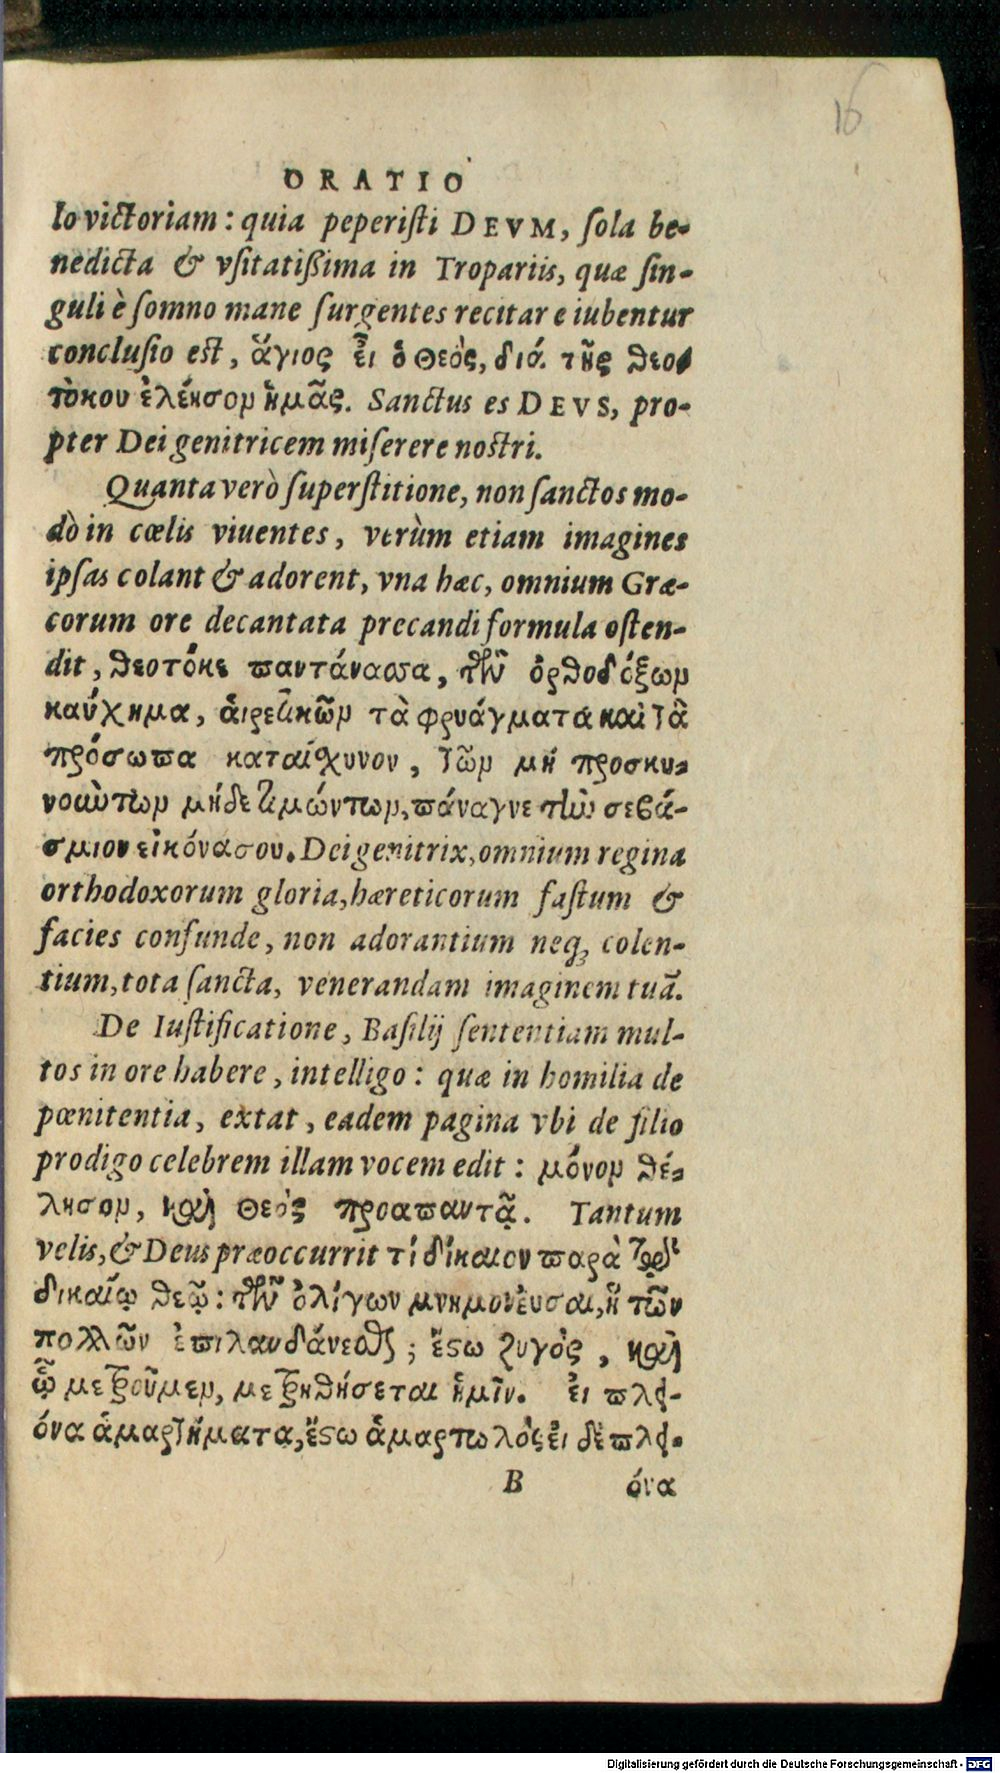 16
ORATIO
lo victoriam: quia peperiſti DEVM, ſola be-
nedicta & vſitatißima in Tropariis, quæ ſin-
guli è ſomno mane ſurgentes recitare iubentur
concluſio est, ἅγιος εἶ ὁ Θεὸς, διά τῆς θεο-
τόκου ἐλέησον ἡμᾶς. Sanctus es DEVS, pro-
pter Dei genitricem miſerere nostri.
Quanta verò ſuperſtitione, non ſanctos mo-
dò in cœlis viuentes, verùm etiam imagines
ipſas colant & adorent, vna hæc, omnium Græ-
corum ore decantata precandi formula oſten-
dit, θεοτόκε παντάνασσα, τῶν ὀρθοδόξων
καύχημα, ἁιρετικῶν τὰ φρυάγματα καὶ τὰ
πρόσωπα καταίσχυνον, τῶν μὴ προσκυ-
νούντων μήδε τιμώντων, πάναγνε τὴν σεβά-
σμιον εἰκόνασου. Dei genitrix, omnium regina
orthodoxorum gloria, hæreticorum faſtum &
facies confunde, non adorantium neq; colen-
tium, tota ſancta, venerandam imaginem tuã.
De Iuſtificatione, Baſilij ſententiam mul-
tos in ore habere, intelligo: quæ in homilia de
pœnitentia, extat, eadem pagina vbi de filio
prodigo celebrem illam vocem edit: μόνον θέ-
λησον, καὶ Θεὸς προαπαντᾷ. Tantum
velis, & Deus præoccurrit τί δίκαιον παρὰ τῷ
δικαίῳ θεῷ: τῶν ὀλίγων μνημονέυσαι, ἢ τῶν
πολλῶν ἐπιλανθάνεσθαι; ἔστω ζυγὸς, καὶ
ᾧ μετροῦμεν, μετρηθήσεται ἡμῖν. ἐι πλει-
όνα ἁμαρτήματα, ἔστω ἁμαρτωλὸς ἐι δὲ πλει-
B όνα
Digitalisierung gefördert durch die Deutsche Forschungsgemeinschaft - DFG